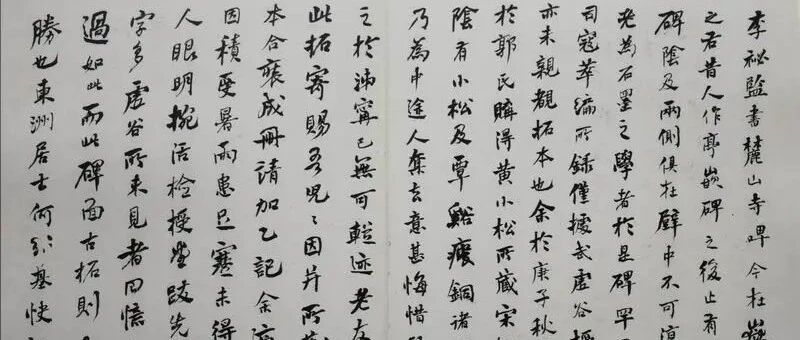 李祕監書麓山寺碑今在嶽
之右昔人作亭嵌碑之後止有
碑陰及兩側俱在壁中不可
老為石墨之學者於是碑罕
司寇萃編所錄僅據武虛谷
亦未親覩拓本也余於庚子秋
於郭氏購得黃小松所藏宋
陰有小松及覃谿瘞銅諸
乃為中途人奪去意甚悔惜
之於沛甯已無可蹤迹老友
此拓寄賜吾兒〻因并所
本合裝成冊請加乙記余
因積受暑雨患足蹇未得
人眼明捥活檢搜坐跋先
字多虛谷所未見者回憶
過如此而此碑面古拓則
勝也東洲居士何紹基快